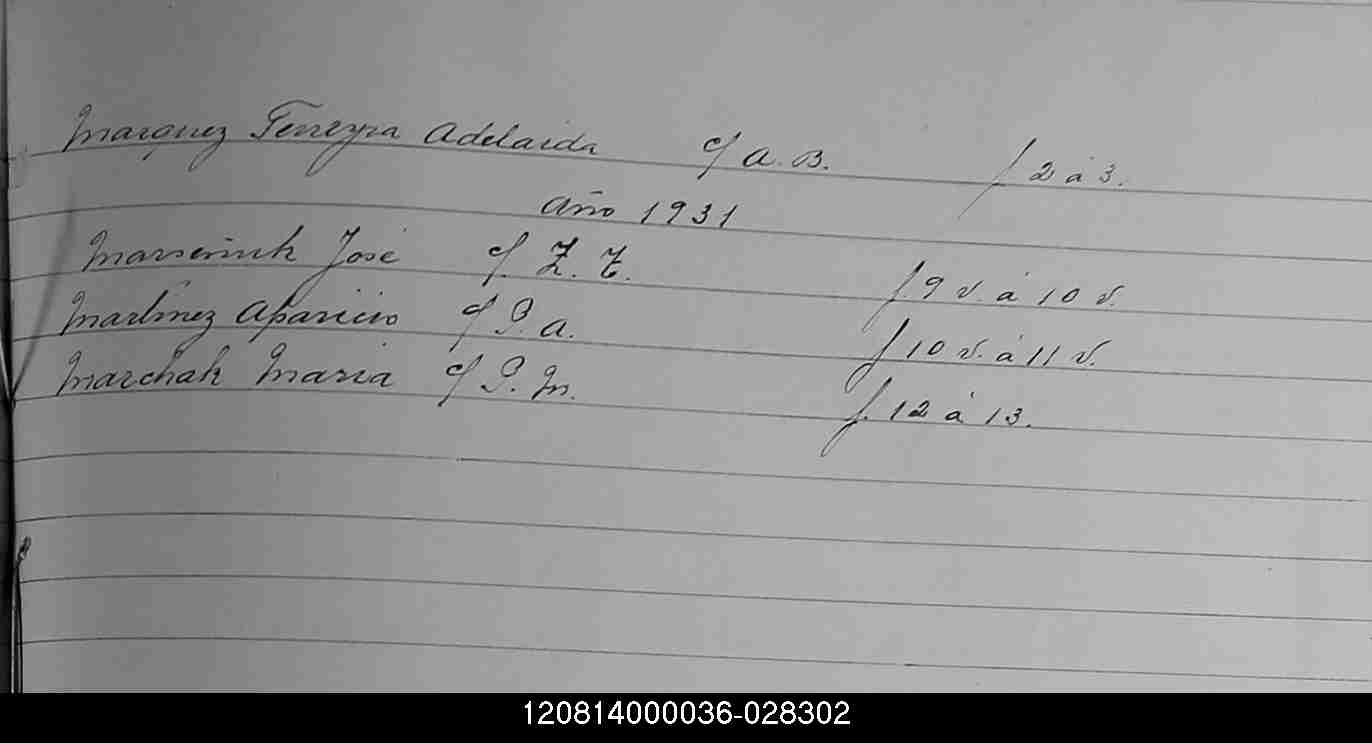 Marquez Ferreyra Adelaida c/ A. B. f 2 á 3.
Año 1931
José c/ Z. T. f. 9 v. á 10 v.
Martínez Aparicio c/ P. A. f 10 v. á 11 v.
Marchak Maria c/ P. M. f. 12 á 13.
120814000036-028302